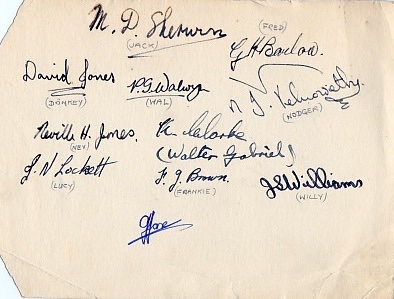 M. D. Sherwin
(JACK)
(FRED)
G H Barlow.
David Jones
(DONKEY)
P. G. Walwyn
(WAL)
(NODGER)
Neville H. Jones.
(NEV)
K. Clarke
(Walter Gabriel)
J. N Lockett
(LUCY)
F. J. Brown.
(FRANKIE)
J S Williams
(WILLY)